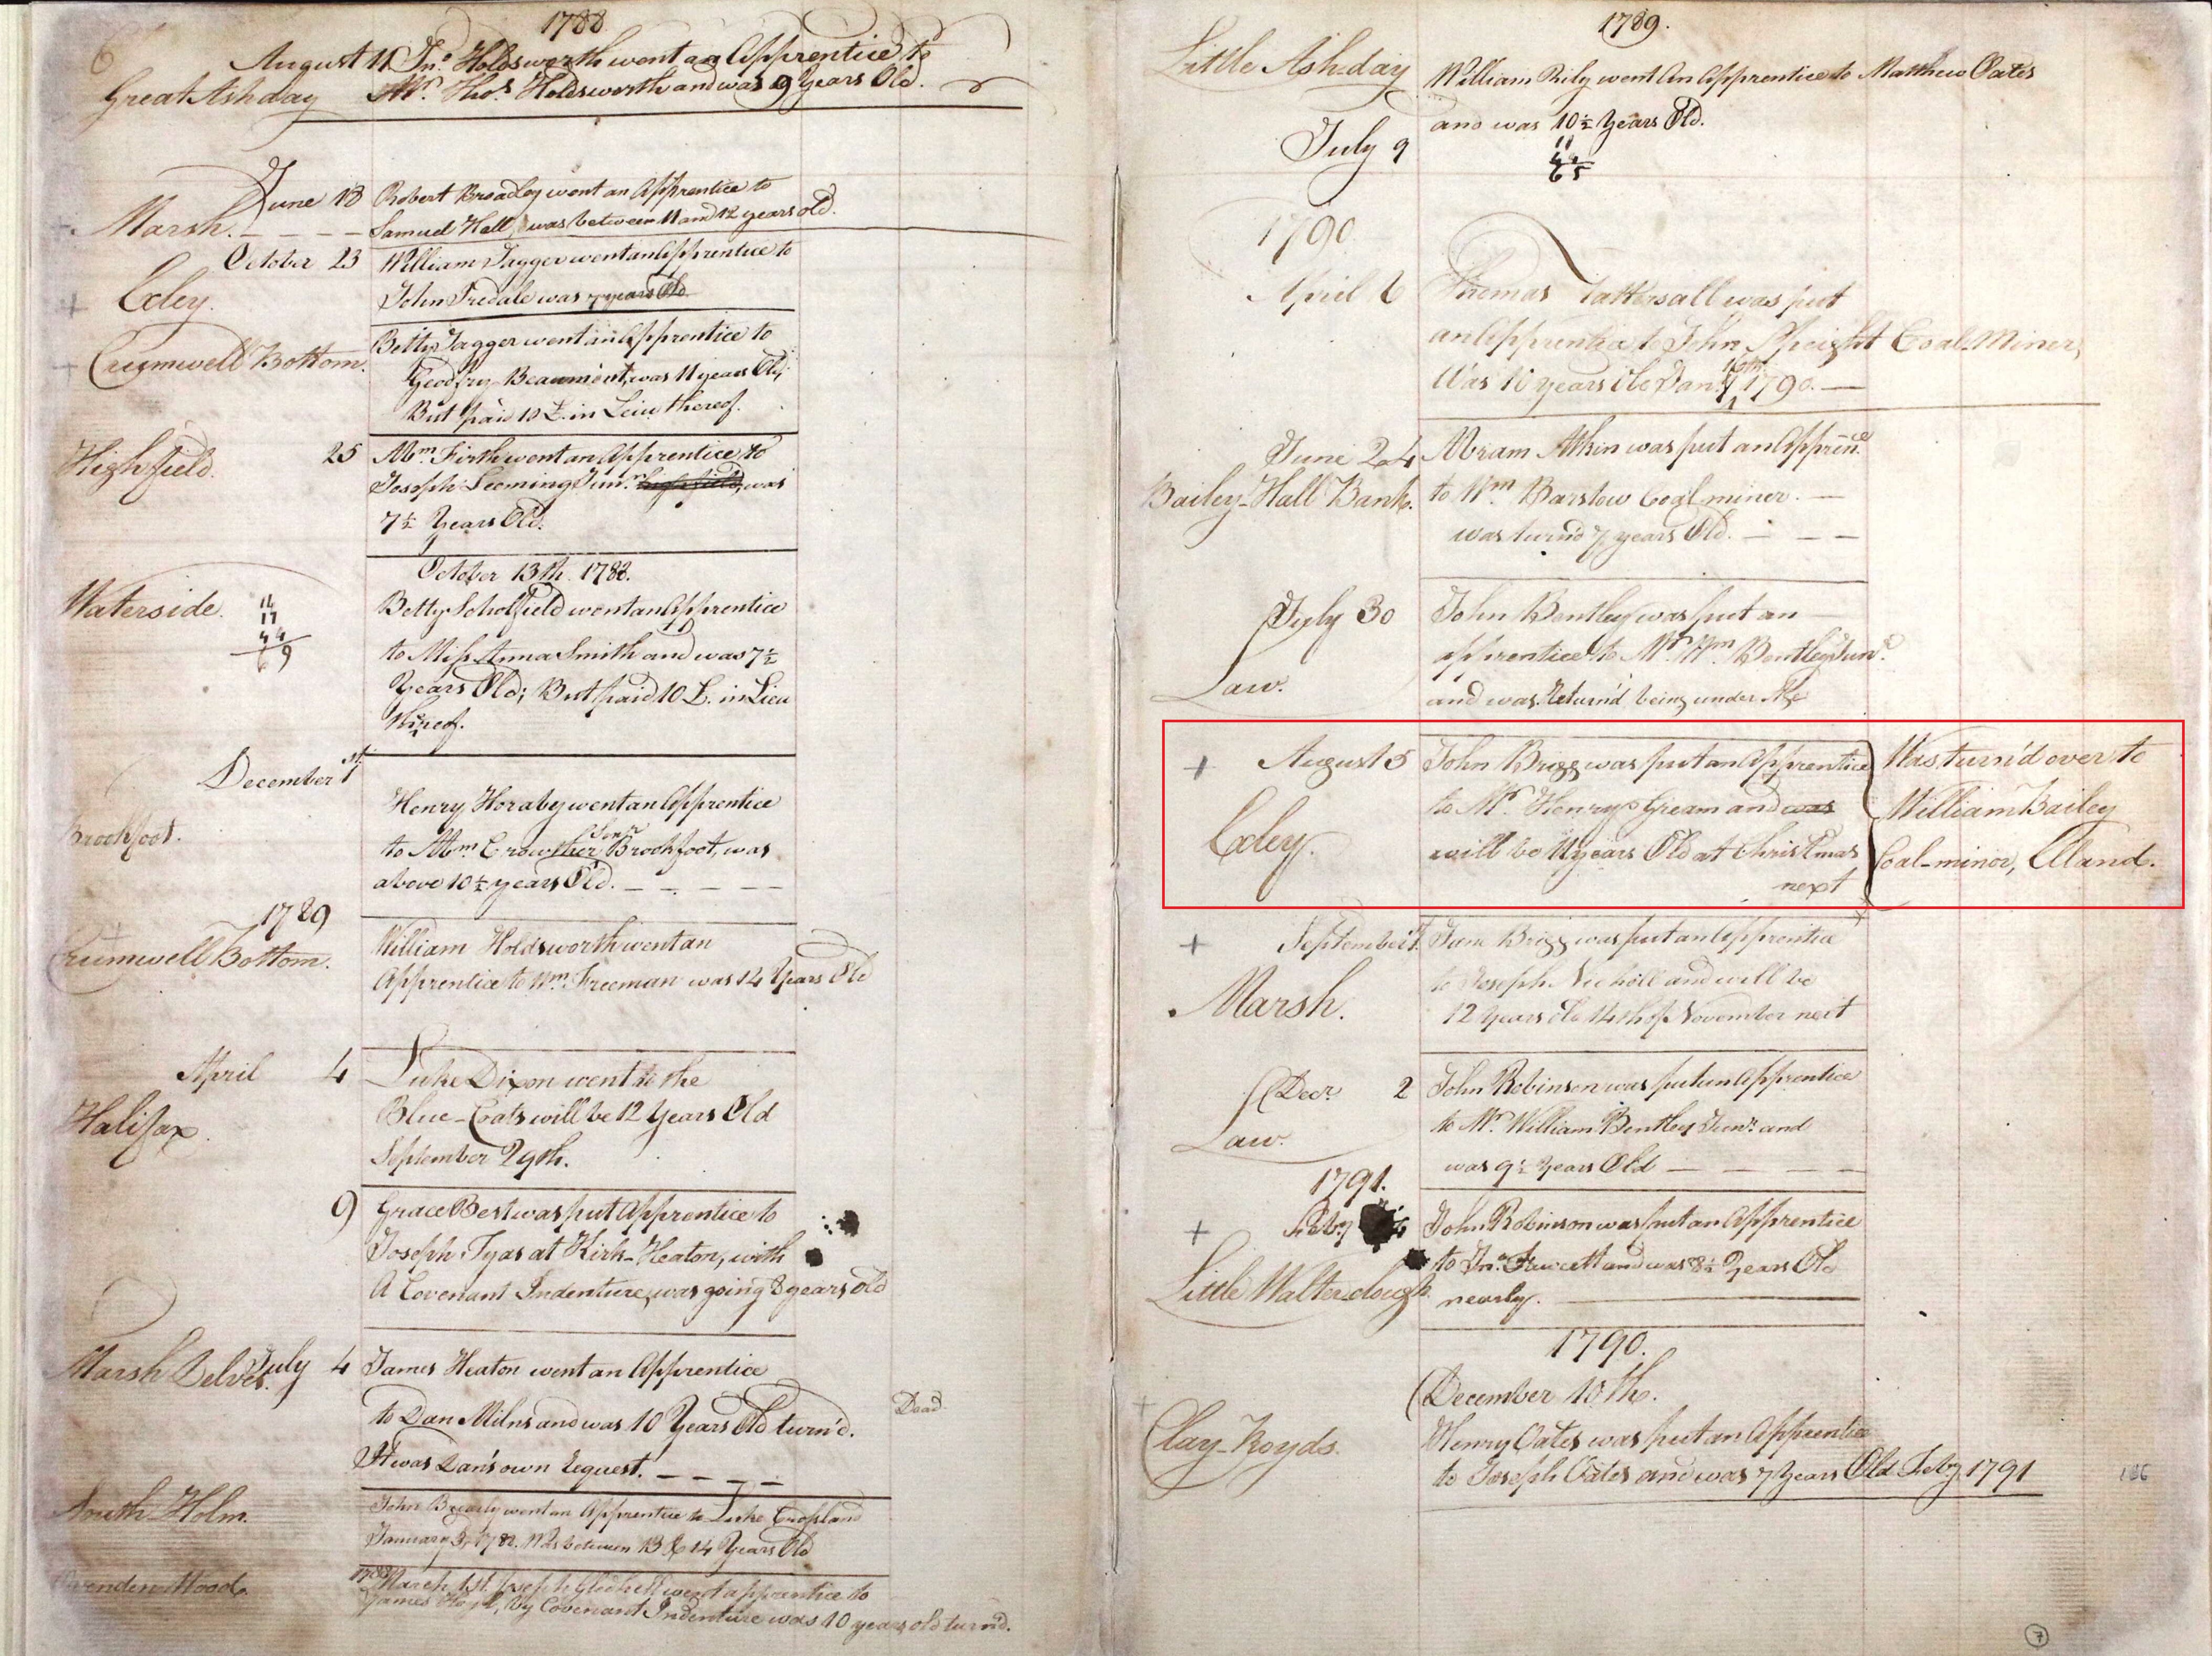 6
1788
August 11 Jno. Holdsworth went an Apprentice to
Great Ashday Mr. Thos. Holdsworth and was 9 Years Old.
June 18 Robert Broadley went an Apprentice to
Marsh. Samuel Hall, was between 11 and 12 years old.
October 23 William Jagger went an Apprentice to
+ Exley. John Iredale was 7 years Old
Betty Jagger went an Apprentice to
Crumwell Bottom. Geodfry Beaumont, was 11 years Old,
But paid 10 £. in Leiu thereof.
Highfield. 25 Wm. Firth went an Apprentice to
Joseph Leeming Junr. was
7½ Years Old.
October 13th. 1788.
Waterside. Betty Scholfield went an Apprentice
to Miss Anna Smith and was 7½
Years Old; But paid 10 £. in Lieu
thereof.
December 1st
Henry Horaby went an Apprentice
Senr
Brookfoot. to Wm. Crowther Brookfoot, was
above 10½ years Old.
1789
Crumwell Bottom. William Holdsworth went an
Apprentice to Wm. Freeman was 14 Years Old
April 4 Luke Dixon went to the
Halifax. Blue-Coats will be 12 Years Old
September 29th.
9 Grace Best was put Apprentice to
Joseph Tyas at Kirk-Heaton, with
A Covenant Indenture, was going 8 years old
Marsh Delves. July 4 James Heaton went an Apprentice
to Dan Milns and was 10 Years Old turn'd. Dead
It was Dan's own Request.
South-Holm. John Brearly went an Apprentice to Luke Crosland
January 3, 1782. Was between 13 & 14 Years Old
1788 March 1st. Joseph Gledhill went apprentice to
Ovenden Wood. James by Covenant Indenture was 10 years old turn'd.
1789.
Little Ashday William Rily went An Apprentice to Matthew Oates
and was 10½ Years Old.
July 9
1790
April 6 Thomas Tattersall was put
an Apprentice to John Speight Coal-Miner,
Was 10 years Old Jany. 1790.
June 24 Abram Atkin was put an Apprene.
Bailey-Hall Bank. to Wm Barstow Coal miner.
was turn'd 7 years Old.
July 30 John Bentley was put an
apprentice to Mr. Wm. Bentley Junr.
Law. and was Return'd being under Age
+ August 5 John Brigg was put an Apprentice Was turn'd over to
to Mr. Henry Gream and was William Bailey
Exley. will be 11 years Old at Christmas Coal-minor, Elland.
next
+ September 1. Jane Brigg was put an Apprentice
to Joseph Nicholl and will be
Marsh. 12 Years Old 14th of November next
Decr. 2 John Robinson was put an Apprentice
to Mr. William Bentley Junr. and
Law. was 9½ Years Old
1791.
+ Feby John Robinson was put an Apprentice
to Jno. Fawcett and was 8½ Years Old
Little Walterclough nearly.
1790.
December 10th.
+ Henry Oates was put an Apprentice
Clay-Royds. to Joseph Oates and was 7 Years Old Feby 1791
7